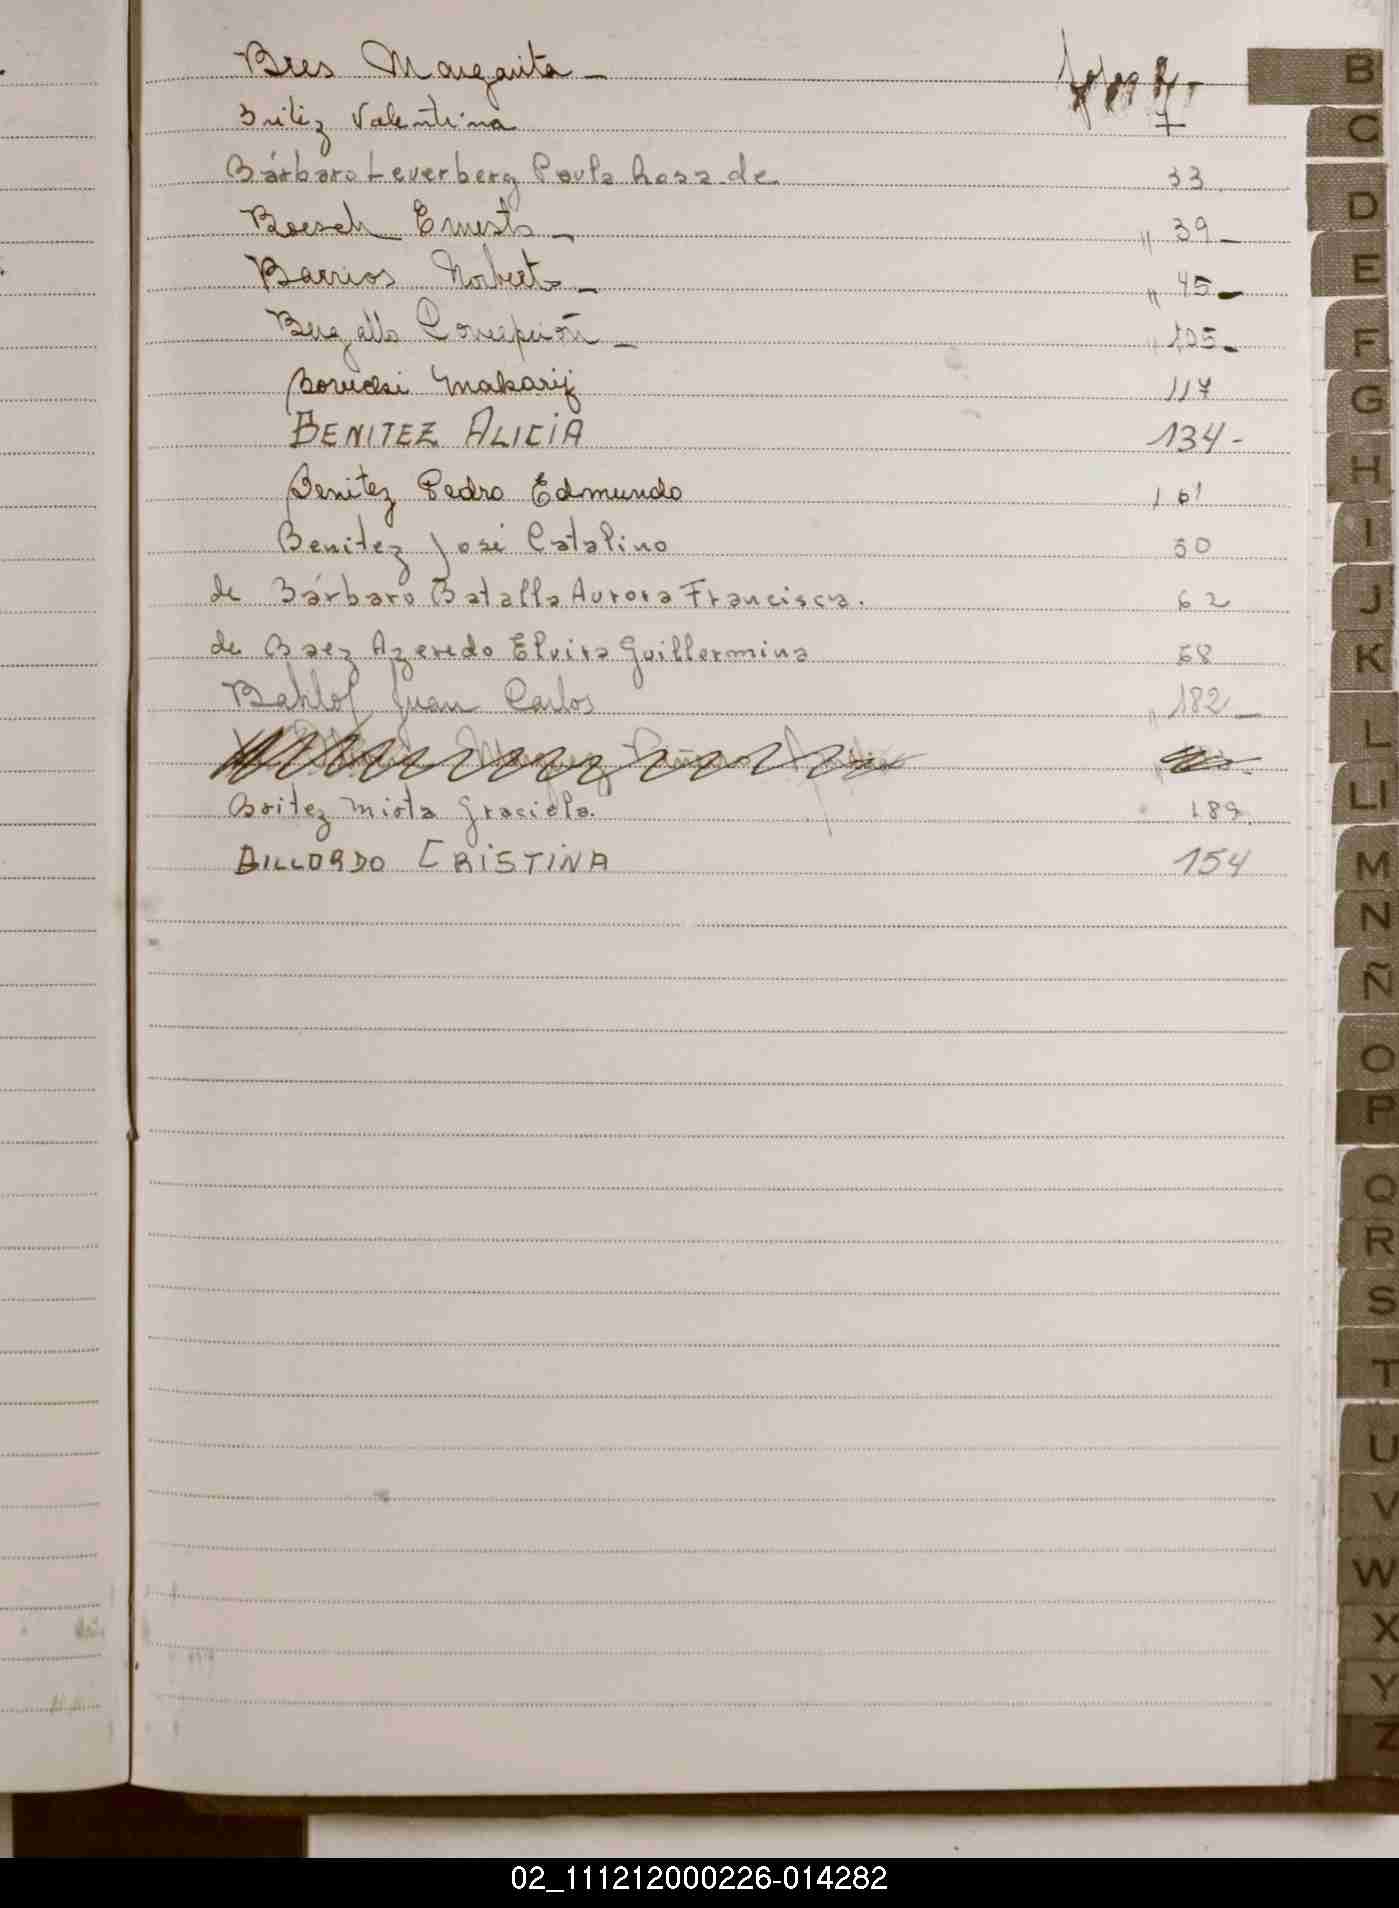 Bres Margarita - folio 2 -
Britez Valentina 7
Bárbaro Leverberg Paula Rosa de 33
Boesch Ernesto - " 39 -
Barrios Norberto - " 45 -
Bergallo Concepción - " 105 -
Makarij 117
BENITEZ ALICIA 134 -
Benitez Pedro Edmundo 161
Benitez José Catalino 50
de Bárbaro Batalla Aurora Francisca. 62
de Baez Azeredo Elvira Guillermina 68
Bahlof Juan Carlos " 182 -
Britez Mirta Graciela. 189.
BILLORDO CRISTINA 154
B
C
D
E
F
G
H
I
J
K
L
LL
M
N
Ñ
O
P
Q
R
S
T
U
V
W
X
Y
Z
02_111212000226-014282